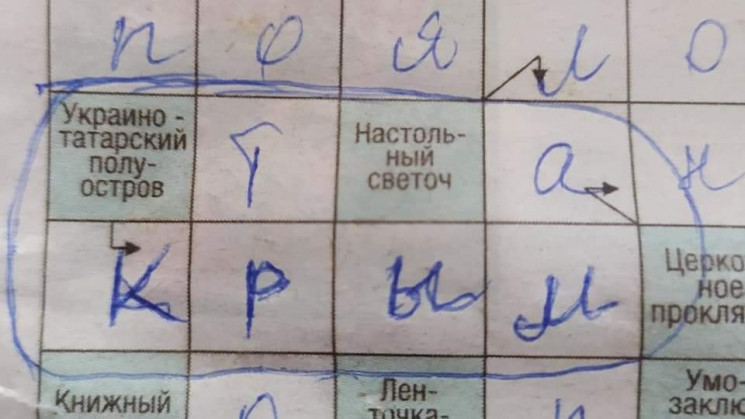 П О Я Л О
Украино-
татарский
полу-
остров
Т
Настоль-
ный
светоч
а н
К Р Ы М
Церко
ное
прокля
Книжный
Лен-
точка-
Умо-
заклю